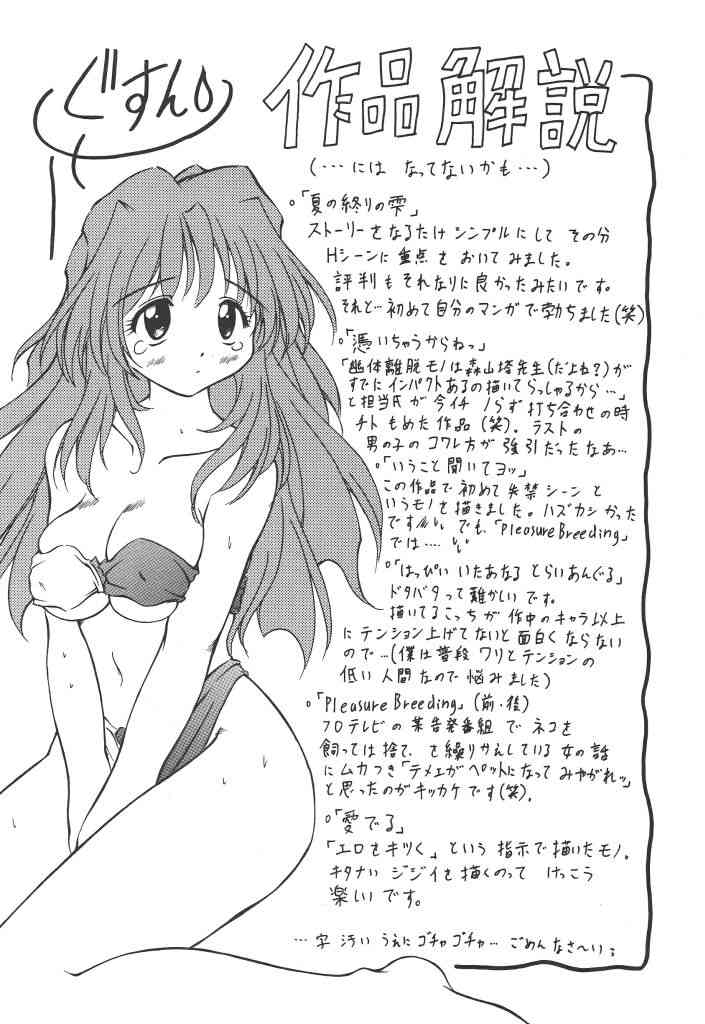 ぐすん
作品解説
(･･･には なってないかも･･･)
「夏の終りの雫」
ストーリーをなるたけ シンプルにして その分
Hシーンに重点を おいてみました。
評判もそれなりに良かったみたいです。
それと…初めて自分のマンガで勃ちました(笑)
「憑いちゃうからねっ」
「幽体離脱モノは森山塔先生(だよね?)が
すでにインパクトあるの描いてらっしゃるから…」
と担当氏が今イチ ノらず打ち合わせの時
チト もめた作品(笑)。ラストの
男の子のコワレ方が 強引だったなあ…
「いうこと聞いてヨッ」
この作品で初めて失禁シーンと
いうモノを描きました。ハズカシかった
です でも、「Pleasure Breeding」
では……
「はっぴい いたあなる とらいあんぐる」
ドタバタって難かしいです。
描いてるこっちが作中のキャラ以上
にテンション上げてないと面白くならない
ので…(僕は普段ワリとテンションの
低い人間なので悩みました)
「Pleasure Breeding」(前・後)
フロテレビの某告発番組でネコを
飼っては捨て、を繰りかえしている女の話
にムカつき「テメエがペットになってみやがれッ」
と思ったのがキッカケです(笑)。
「愛でる」
「エロをキツく」という指示で描いたモノ。
キタナい ジジイを描くのって けっこう
楽しいです。
…字汚いうえにゴチャゴチャ… ごめんなさ〜い;